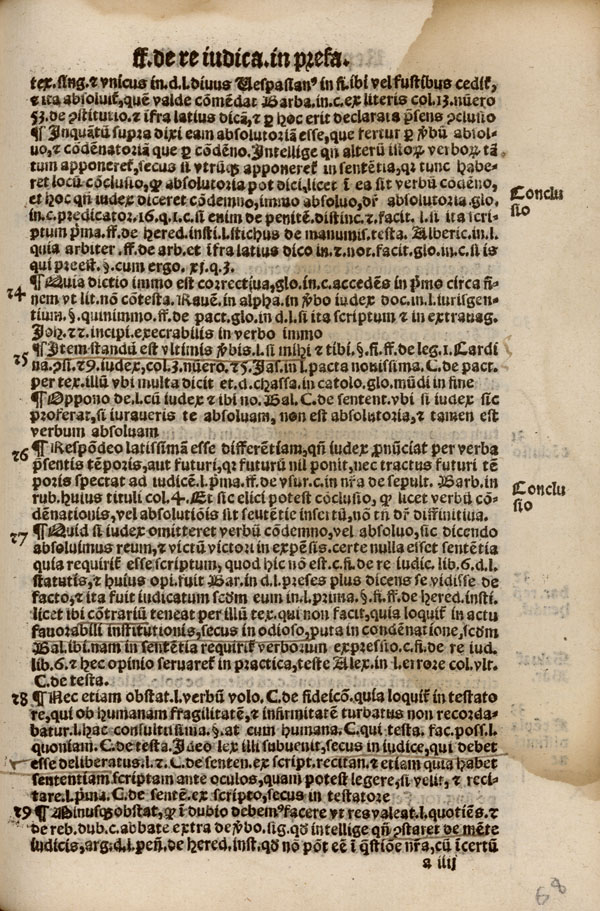 ff. de re iudica. in prefa.
tex. sing. ⁊ vnicus in. d. l. diuus Uespasianꝰ in fi. ibi vel fustibus cedit̃,
⁊ ita absoluit̃, quẽ valde cõmendat Barba. in. c. ex literis col. 13. nũero
53. de ꝯstitutio. ⁊ ifra latius dicã, ⁊ ꝑ hoc erit declarata p̃sens ꝯclusio
¶ Inquãtũ supra dixi eam absolutoriã esse, que fertur ꝑ v̓bũ absol-
uo, ⁊ cõdẽnatoriã que ꝑ cõdẽno. Intellige qñ alterũ istoꝝ verboꝝ tã
tum apponeret̃, secus si vtrũqꝫ apponeret̃ in sentẽtia, qꝛ tunc habe-
ret locũ cõclusio, ꝙ absolutoria pot dici, licet ĩ ea sit verbũ cõdẽno,
et hoc qñ iudex diceret cõdemno, immo absoluo, dr̃ absolutoria. glo.
in. c. predicator. 16. q. 1. c. si enim de penitẽ. distinc. ⁊. facit. l. si ita scri-
ptum p̃ma. ff. de hered. insti. l. stichus de manumis. testa. Alberic. in l.
quia arbiter .ff. de arb. et ifra latius dico in. ⁊. not. facit. glo. in. c. si is
qui preest. §. cum ergo. xj. q. 3.
Conclu
sio
24 ¶ Quia dictio immo est correctiua, glo. in. c. accedẽs in p̃mo circa fi-
nem vt lit. nõ cõtesta. Rauẽ. in alpha. in v̓bo iudex doc. in. l. iurisgen-
tium. §. quinimmo. ff. de pact. glo. in d. l. si ita scriptum ⁊ in extrauag.
Joh. 22. incipi. execrabilis in verbo immo
25 ¶ Item standũ est vltimis v̓bis. l. si mihi ⁊ tibi. §. fi. ff. de leg. 1. Cardi
na. ꝯsi. 29. iudex, col. 3. nũero. 25. Jas. in l. pacta nouissima. C. de pact.
per tex. illũ vbi multa dicit et. d. chassa. in catolo. glo. mũdi in fine
¶ Oppono de. l. cũ iudex ⁊ ibi no. Bal. C. de sentent. vbi si iudex sic
proferat, si iuraueris te absoluam, non est absolutoria, ⁊ tamen est
verbum absoluam
26 ¶ Respõdeo latissimã esse differẽtiam, qñ iudex p̃nũciat per verba
p̃sentis tẽporis, aut futuri, qꝛ futurũ nil ponit, nec tractus futuri tẽ
poris spectat ad iudicẽ. l. p̃ma. ff. de vsur. c. in nr̃a de sepult. Barb. in
rub. huius tituli col. 4. Et sic elici potest cõclusio, ꝙ licet verbũ cõ-
dẽnationis, vel absolutiõis sit sentẽtie insertũ, nõ tñ dr̃ diffinitiua.
Conclu
sio
27 ¶ Quid si iudex omitteret verbũ cõdemno, vel absoluo, sic dicendo
absoluimus reum, ⁊ victũ victori in expẽsis. certe nulla esset sentẽtia
quia requirit̃ esse scriptum, quod hic nõ est. c. fi. de re iudic. lib. 6. d. l.
statutis, ⁊ huius opi. fuit Bar. in d. l. preses plus dicens se vidisse de
facto, ⁊ ita fuit iudicatum scd̃m eum in. l. prima. §. fi. ff. de hered. insti.
licet ibi cõtrariũ teneat per illũ tex. qui non facit, quia loquit̃ in actu
fauorabili institutionis, secus in odioso, puta in condẽnatione, scd̃m
Bal. ibi. nam in sentẽtia requirit̃ verborum expressio. c. fi. de re iud.
lib. 6. ⁊ hec opinio seruaret̃ in practica, teste Alex. in l. errore col. vlt.
C. de testa.
28 ¶ Nec etiam obstat. l. verbũ volo. C. de fideicõ. quia loquit̃ in testato
re, qui ob humanam fragilitatẽ, ⁊ infirmitatẽ turbatus non recorda-
batur. l. hac consultissima. §. at cum humana. C. qui testa. fac. poss. l.
quoniam. C. de testa. Ideo lex illi subuenit, secus in iudice, qui debet
esse deliberatus. l. 2. C. de senten. ex script. recitan. ⁊ etiam quia habet
sententiam scriptam ante oculos, quam potest legere, si velit, ⁊ reci-
tare. l. p̃ma. C. de sentẽ. ex scripto, secus in testatore
29 ¶ Minusqꝫ obstat, ꝙ ĩ dubio debemꝰ facere vt res valeat. l. quotiẽs. ⁊
de reb. dub. c. abbate extra de v̓bo. sig. qd̃ intellige qñ ꝯstaret de mẽte
iudicis, arg. d. l. pen̄. de hered. inst. qd̃ nõ põt eẽ ĩ q̃stiõe nr̃a, cũ ĩcertũ
a iiij
68